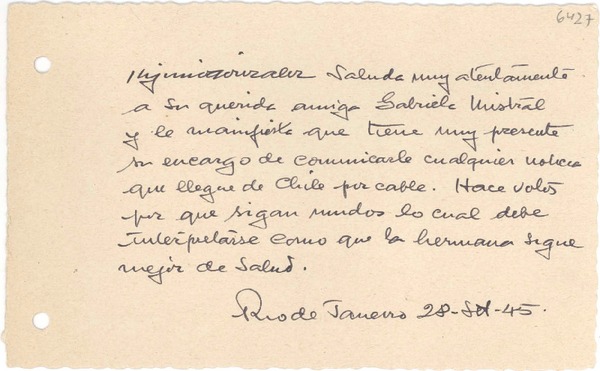 6427
González Saluda muy atentamente
a su querida amiga Gabriela Mistral
y le manifiesta que tiene muy presente
su encargo de comunicarle cualquier noticia
que llegue de Chile por cable. Hace votos
por que sigan mudos lo cual debe
interpretarse como que la hermana sigue
mejor de Salud.
Rio de Janeiro 28-Set-45.